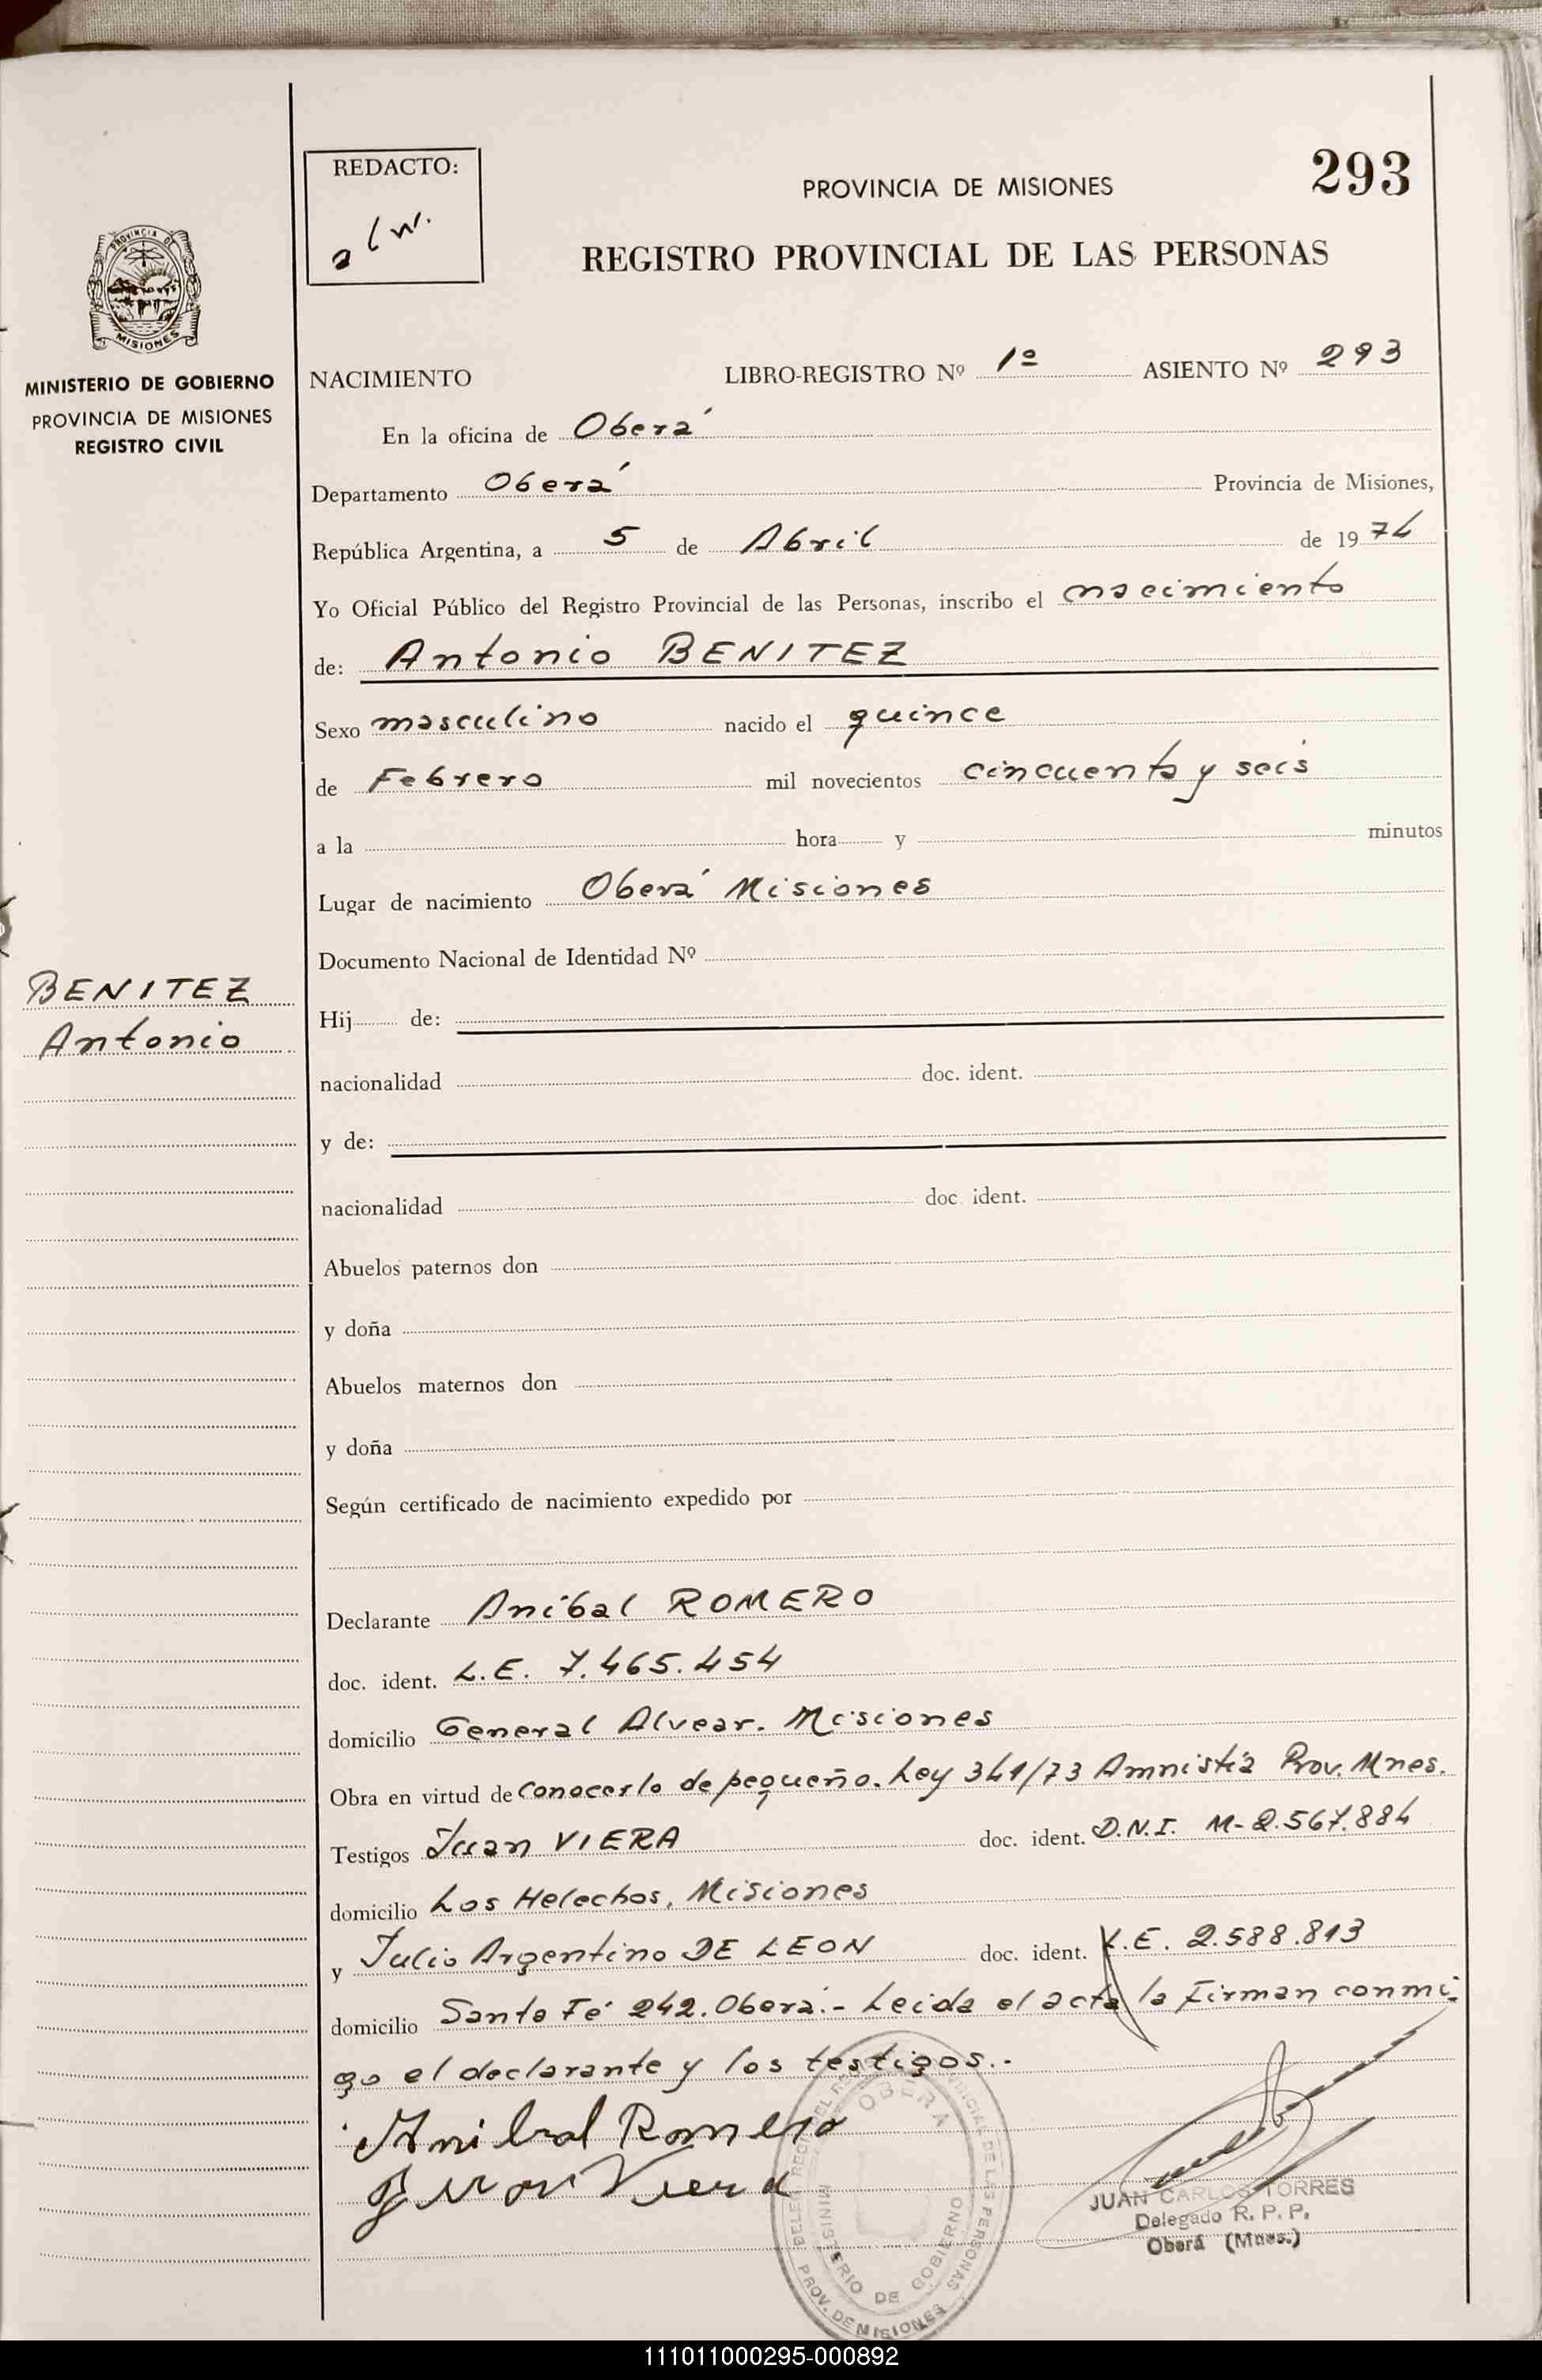 REDACTO:
PROVINCIA DE MISIONES
293
REGISTRO PROVINCIAL DE LAS PERSONAS
PROVINCIA DE
MISIONES
MINISTERIO DE GOBIERNO
PROVINCIA DE MISIONES
REGISTRO CIVIL
NACIMIENTO LIBRO-REGISTRO Nº 1º ASIENTO Nº 293
En la oficina de Oberá
Departamento Oberá Provincia de Misiones,
República Argentina, a 5 de Abril de 1974
Yo Oficial Público del Registro Provincial de las Personas, inscribo el nacimiento
de: Antonio BENITEZ
Sexo masculino nacido el quince
de Febrero mil novecientos cincuenta y seis
a la hora y minutos
Lugar de nacimiento Oberá Misiones
Documento Nacional de Identidad Nº
BENITEZ
Antonio
Hij de:
nacionalidad doc. ident.
y de:
nacionalidad doc. ident.
Abuelos paternos don
y doña
Abuelos maternos don
y doña
Según certificado de nacimiento expedido por
Declarante Aníbal ROMERO
doc. ident. L.E. 7.465.454
domicilio General Alvear. Misiones
Obra en virtud de conocerlo de pequeño. Ley 341/73 Amnistía Prov. Mnes.
Testigos Juan VIERA doc. ident. D.N.I. M-2.567.884
domicilio Los Helechos, Misiones
y Julio Argentino DE LEON doc. ident. L.E. 2.588.813
domicilio Santa Fé 242. Oberá.- Leida el acta la Firman conmi-
go el declarante y los testigos.-
Anibal Romero
Juan Viera
OBERÁ
MINISTERIO DE GOBIERNO
PROV. DE MISIONES
JUAN CARLOS TORRES
Delegado R. P. P.
Oberá (Mnes.)
111011000295-000892